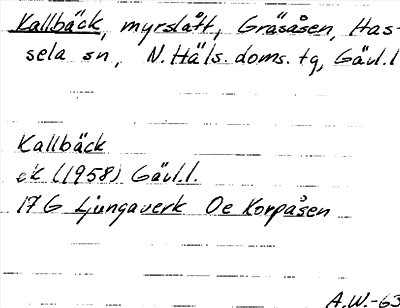 Kallbäck, myrslått, Gräsåsen, Has-
sela sn, N. Häls. doms. tg, Gävl. l
Kallbäck
ek (1958) Gävl. l.
17 G Ljungaverk Oe Korpåsen
A.W.-63